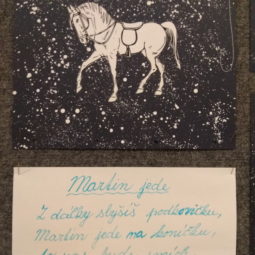 Martin jede
Z dálky slyšíš podkovičku,
Martin jede na koníčku,